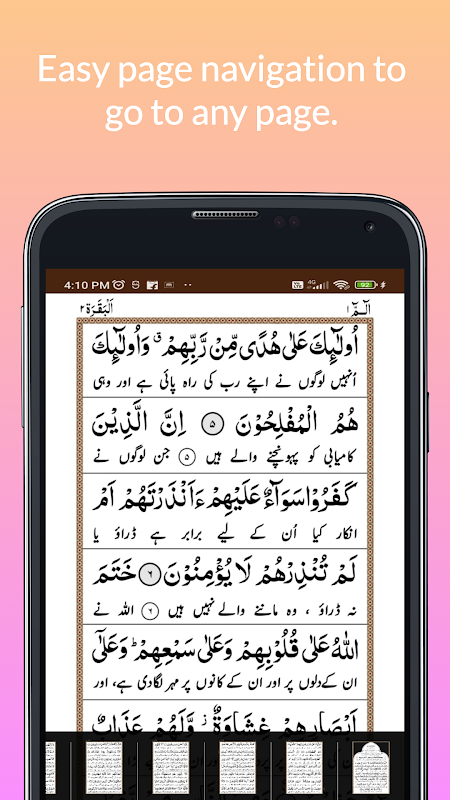 Easy page navigation to
go to any page.
4:10 PM
4G
92
الٓمّٓ ١
اَلْبَقَرَة ٢
اُولٰٓئِكَ عَلٰى هُدًى مِّنْ رَّبِّهِمْ ۙ وَاُولٰٓئِكَ
انہیں لوگوں نے اپنے رب کی راہ پائی ہے اور وہی
هُمُ الْمُفْلِحُوْنَ ۵ اِنَّ الَّذِيْنَ
کامیابی کو پہونچنے والے ہیں ۵ جن لوگوں نے
كَفَرُوْا سَوَآءٌ عَلَيْهِمْ ءَاَنْذَرْتَهُمْ اَمْ
انکار کیا اُن کے لیے برابر ہے ڈراؤ یا
لَمْ تُنْذِرْهُمْ لَا يُؤْمِنُوْنَ ۶ خَتَمَ
نہ ڈراؤ ، وہ ماننے والے نہیں ہیں ۶ اللہ نے
اللّٰهُ عَلٰى قُلُوْبِهِمْ وَعَلٰى سَمْعِهِمْ ؕ وَعَلٰٓى
ان کے دلوں پر اور ان کے کانوں پر مہر لگا دی ہے، اور
اَبْصَارِهِمْ غِشَاوَةٌ ؗ وَّلَهُمْ عَذَابٌ